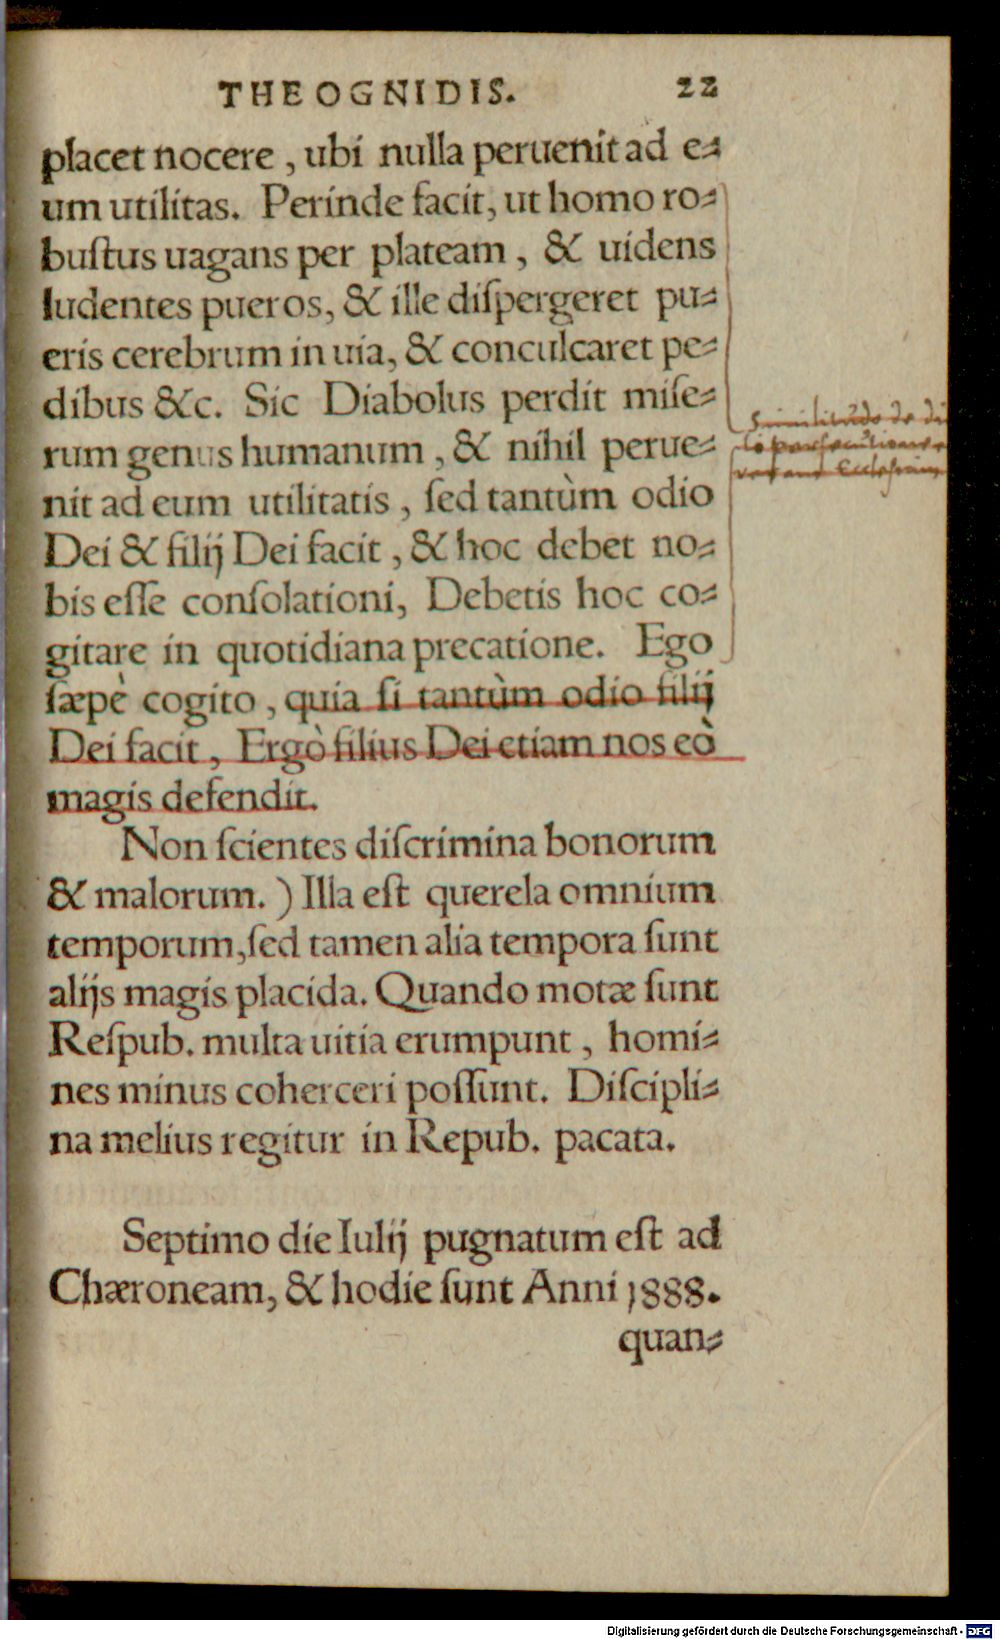 THEOGNIDIS. 22
placet nocere, ubi nulla peruenit ad e⸗
um utilitas. Perinde facit, ut homo ro⸗
buſtus uagans per plateam, & uidens
ludentes pueros, & ille diſpergeret pu⸗
eris cerebrum in uia, & conculcaret pe⸗
dibus &c. Sic Diabolus perdit miſe⸗
rum genus humanum, & nihil perue⸗
nit ad eum utilitatis, ſed tantùm odio
Dei & filij Dei facit, & hoc debet no⸗
bis eſſe conſolationi, Debetis hoc co⸗
gitare in quotidiana precatione. Ego
ſæpè cogito, quia ſi tantùm odio filij
Dei facit, Ergò filius Dei etiam nos eò
magis defendit.
Similitudo de di
Eccleſiam
Non ſcientes diſcrimina bonorum
& malorum.) Illa eſt querela omnium
temporum, ſed tamen alia tempora ſunt
alijs magis placida. Quando motæ ſunt
Reſpub. multa uitia erumpunt, homi⸗
nes minus coherceri poſſunt. Diſcipli⸗
na melius regitur in Repub. pacata.
Septimo die Iulij pugnatum eſt ad
Chæroneam, & hodie ſunt Anni 1888.
quan⸗
Digitalisierung gefördert durch die Deutsche Forschungsgemeinschaft - DFG